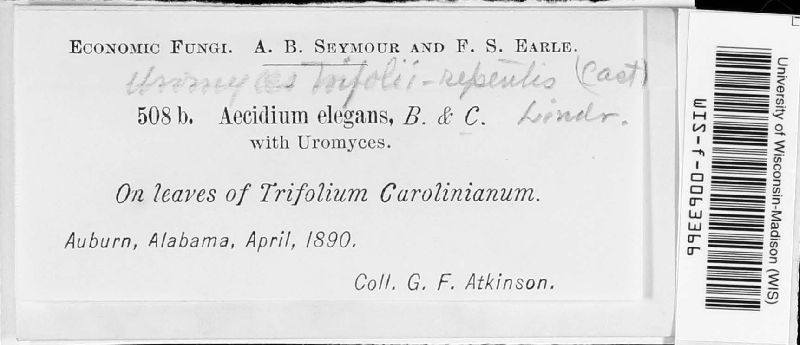 ECONOMIC FUNGI. A. B. SEYMOUR AND F. S. EARLE.
Uromyces Trifolii-repentis (Cast) Lindr.
508 b. Aecidium elegans, B. & C.
with Uromyces.
On leaves of Trifolium Carolinianum.
Auburn, Alabama, April, 1890.
Coll. G. F. Atkinson.
University of Wisconsin-Madison (WIS)
WIS-f-0093996